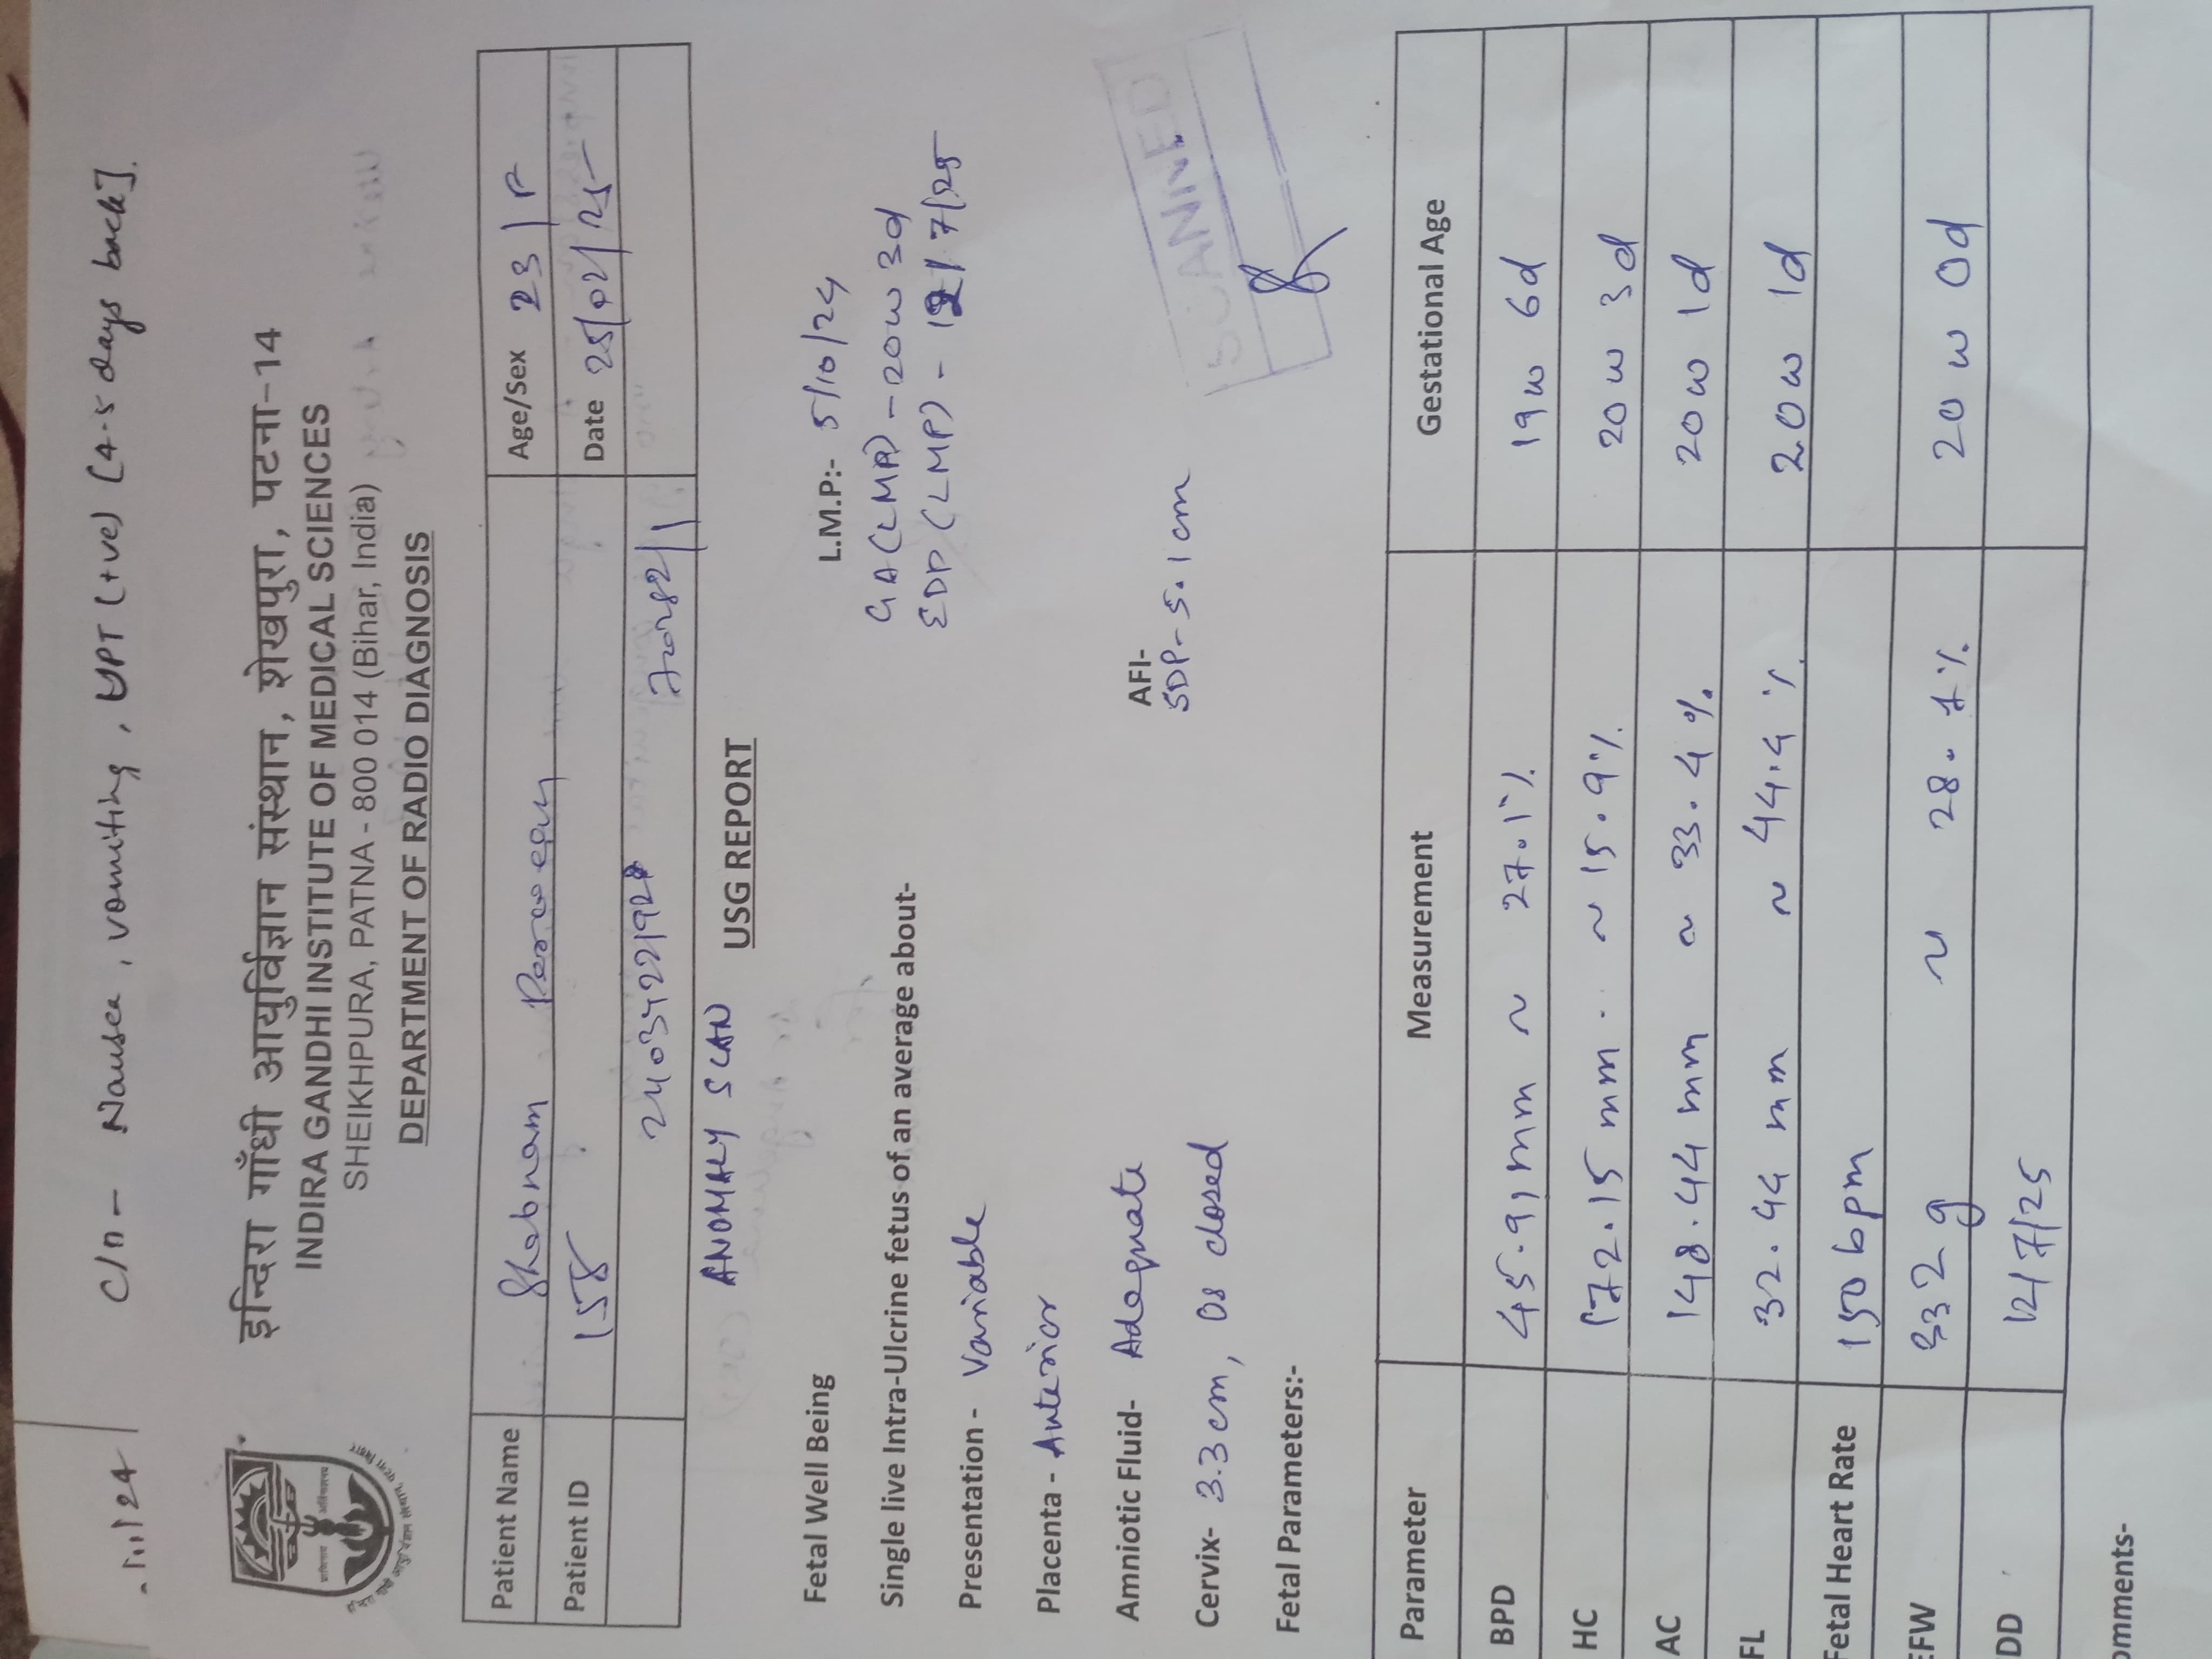 11/24
C/o - Nausea, vomiting, UPT (+ve) (4-5 days back].
इन्दिरा गाँधी आयुर्विज्ञान संस्थान, शेखपुरा, पटना-14
INDIRA GANDHI INSTITUTE OF MEDICAL SCIENCES
SHEIKHPURA, PATNA - 800 014 (Bihar, India)
DEPARTMENT OF RADIO DIAGNOSIS
Patient Name Shabnam Perween Age/Sex 23/F
Patient ID 158 Date 25/02/25
ANOMALY SCAN
USG REPORT
Fetal Well Being L.M.P:- 5/10/24
GA (LMP) - 20w 3d
Single live Intra-Ulcrine fetus of an average about-
EDD (LMP) - 12/7/25
Presentation - Variable
Placenta - Anterior
Amniotic Fluid- Adequate AFI-
SDP - 5.1cm
Cervix- 3.3cm, os closed
SCANNED
Fetal Parameters:-
Parameter Measurement Gestational Age
BPD 45.91mm ~ 27.1% 19w 6d
HC 172.15 mm ~ 15.9% 20w 3d
AC 148.44 mm ~ 33.4% 20w 1d
FL 32.44 mm ~ 44.4% 20w 1d
Fetal Heart Rate 150 bpm
EFW 332g ~ 28.7% 20w 0d
DD 12/7/25
omments-